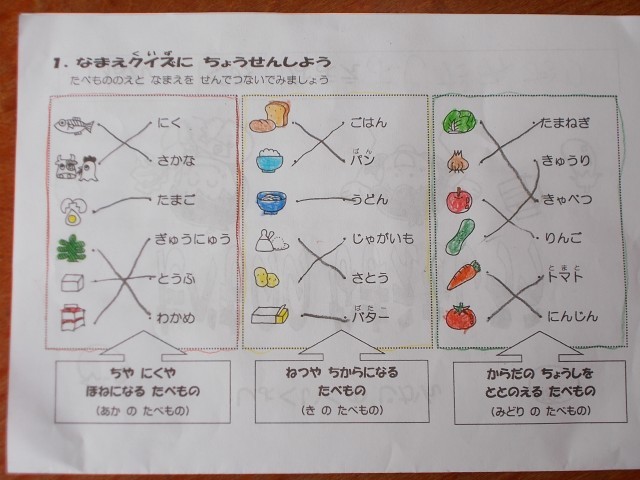 1. なまえクイズに ちょうせんしよう
たべもののえと なまえを せんでつないでみましょう
にく
さかな
たまご
ぎゅうにゅう
とうふ
わかめ
ちや にくや
ほねになる たべもの
(あか の たべもの)
ごはん
パン
うどん
じゃがいも
さとう
バター
ねつや ちからになる
たべもの
(き の たべもの)
たまねぎ
きゅうり
きゃべつ
りんご
トマト
にんじん
からだの ちょうしを
ととのえる たべもの
(みどり の たべもの)